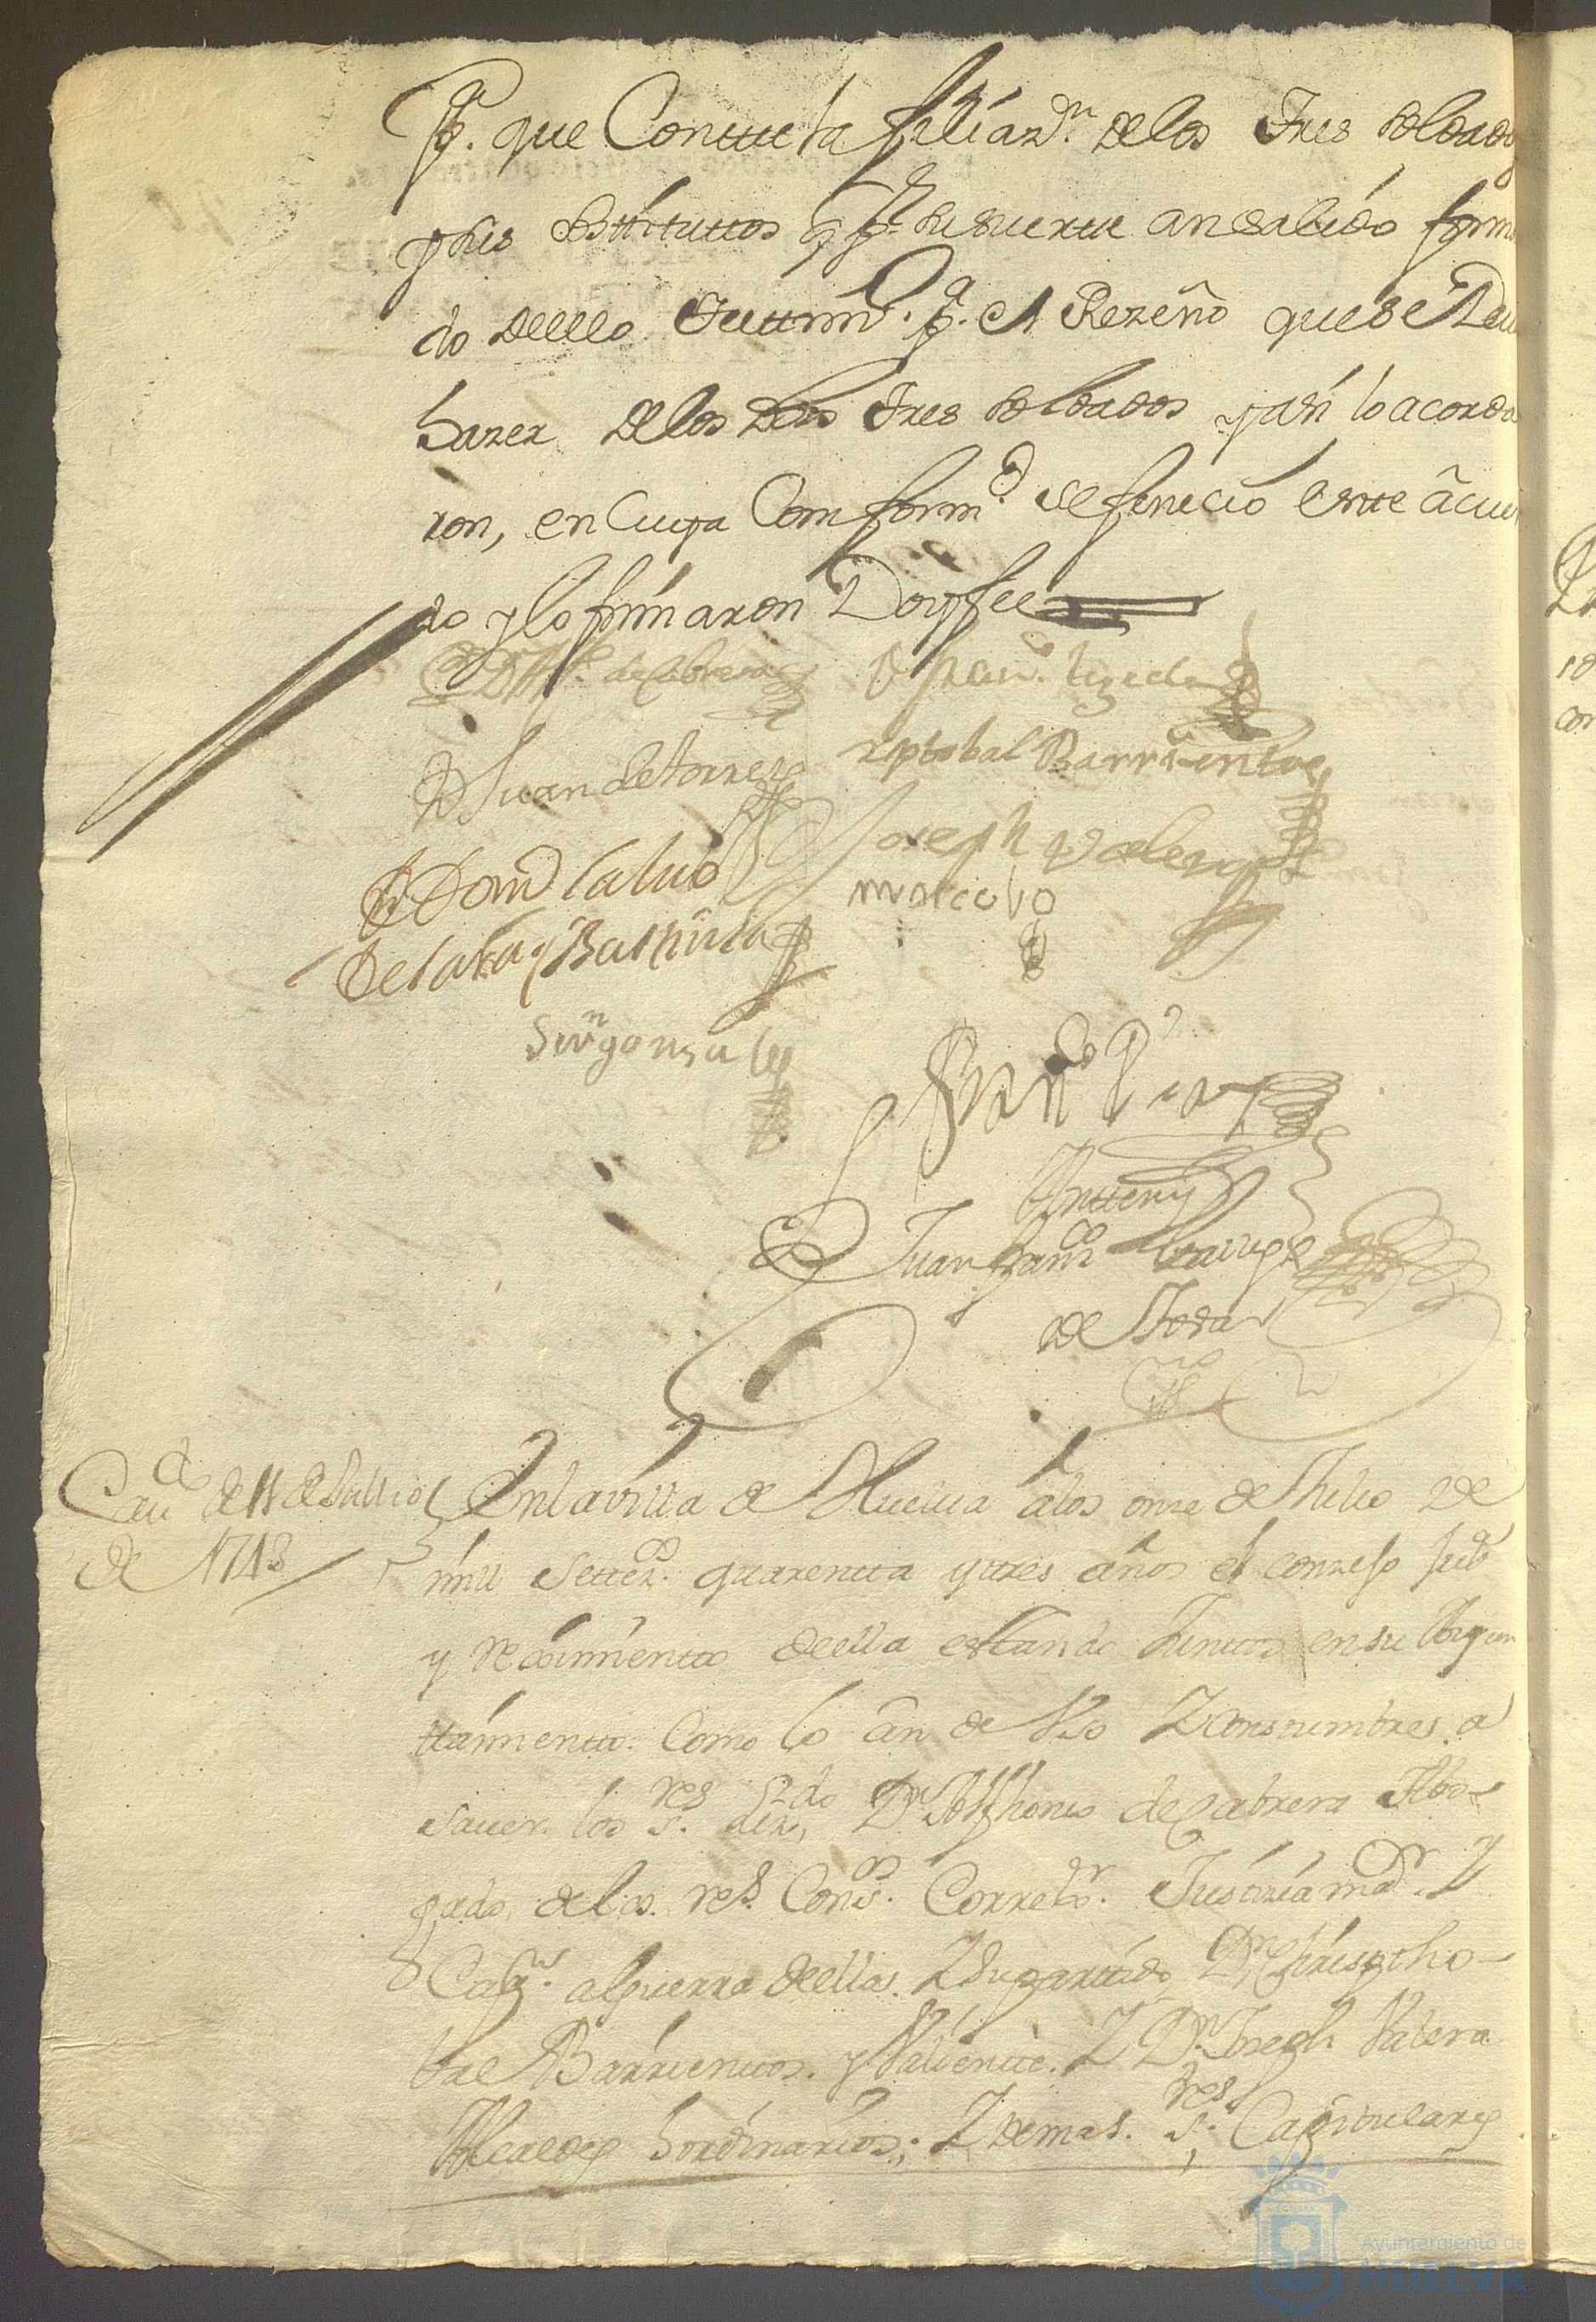 Pr. que Consta la filiazn. de los tres soldados
y sus sostitutos q pr. su suerte an salido forma
do dello testimo. pa. el Rezeño que se Deve
hazer de los dhos tres soldados y asi lo acorda
ron, en Cuya Comformd. se feneció este acuer
do y lo firmaron Doy fee
Dn Alfo. de Cabrera
D Juan de torres
xptobal Barrientos
Joseph Valera
D Domo Calvo
de laba y Bathista
Sevn gonsales
Franco Dias
Antte my
Juan Franco
de Soza
Cavdo de 11 de Jullio
de 1743
En la villa de Huelva a los onze de Julio de
mill Settezos. quarentta y tres años el conzejo justa
y reximiento de ella estando Juntos en su Ayun
ttamiento. Como lo an de Uso Y Constumbres. a
saver. los Sres. Lizdo, Dn Alphonso de Cabrera Abo-
gado de los. res. Consos. Corretor. Justizia mor. Y
Capn. a guerra de ella. Y su partido Dn Christho-
bal Barrientos. y Valiente. Y Dn Joseph Valera
Alcaldes hordinarios; Y demas. Sres. Capitulares
Ayuntamiento de
HUELVA